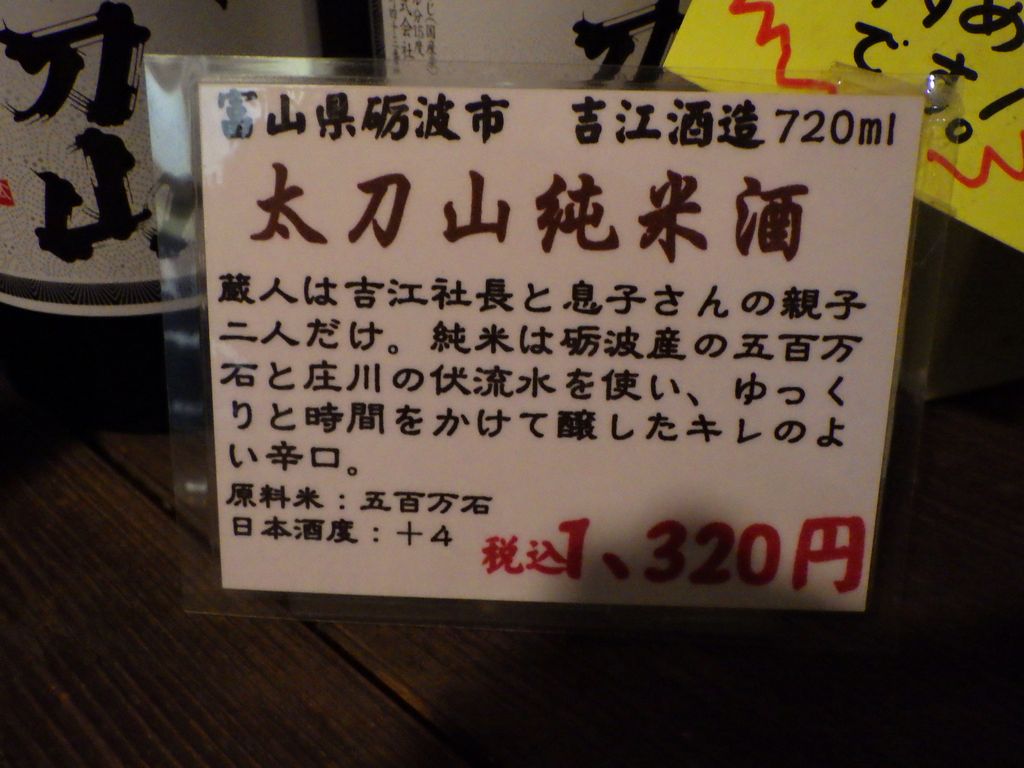 富山県砺波市　吉江酒造 720ml
太刀山純米酒
蔵人は吉江社長と息子さんの親子
二人だけ。純米は砺波産の五百万
石と庄川の伏流水を使い、ゆっく
りと時間をかけて醸したキレのよ
い辛口。
原料米：五百万石
日本酒度：＋4
税込1、320円
刀山